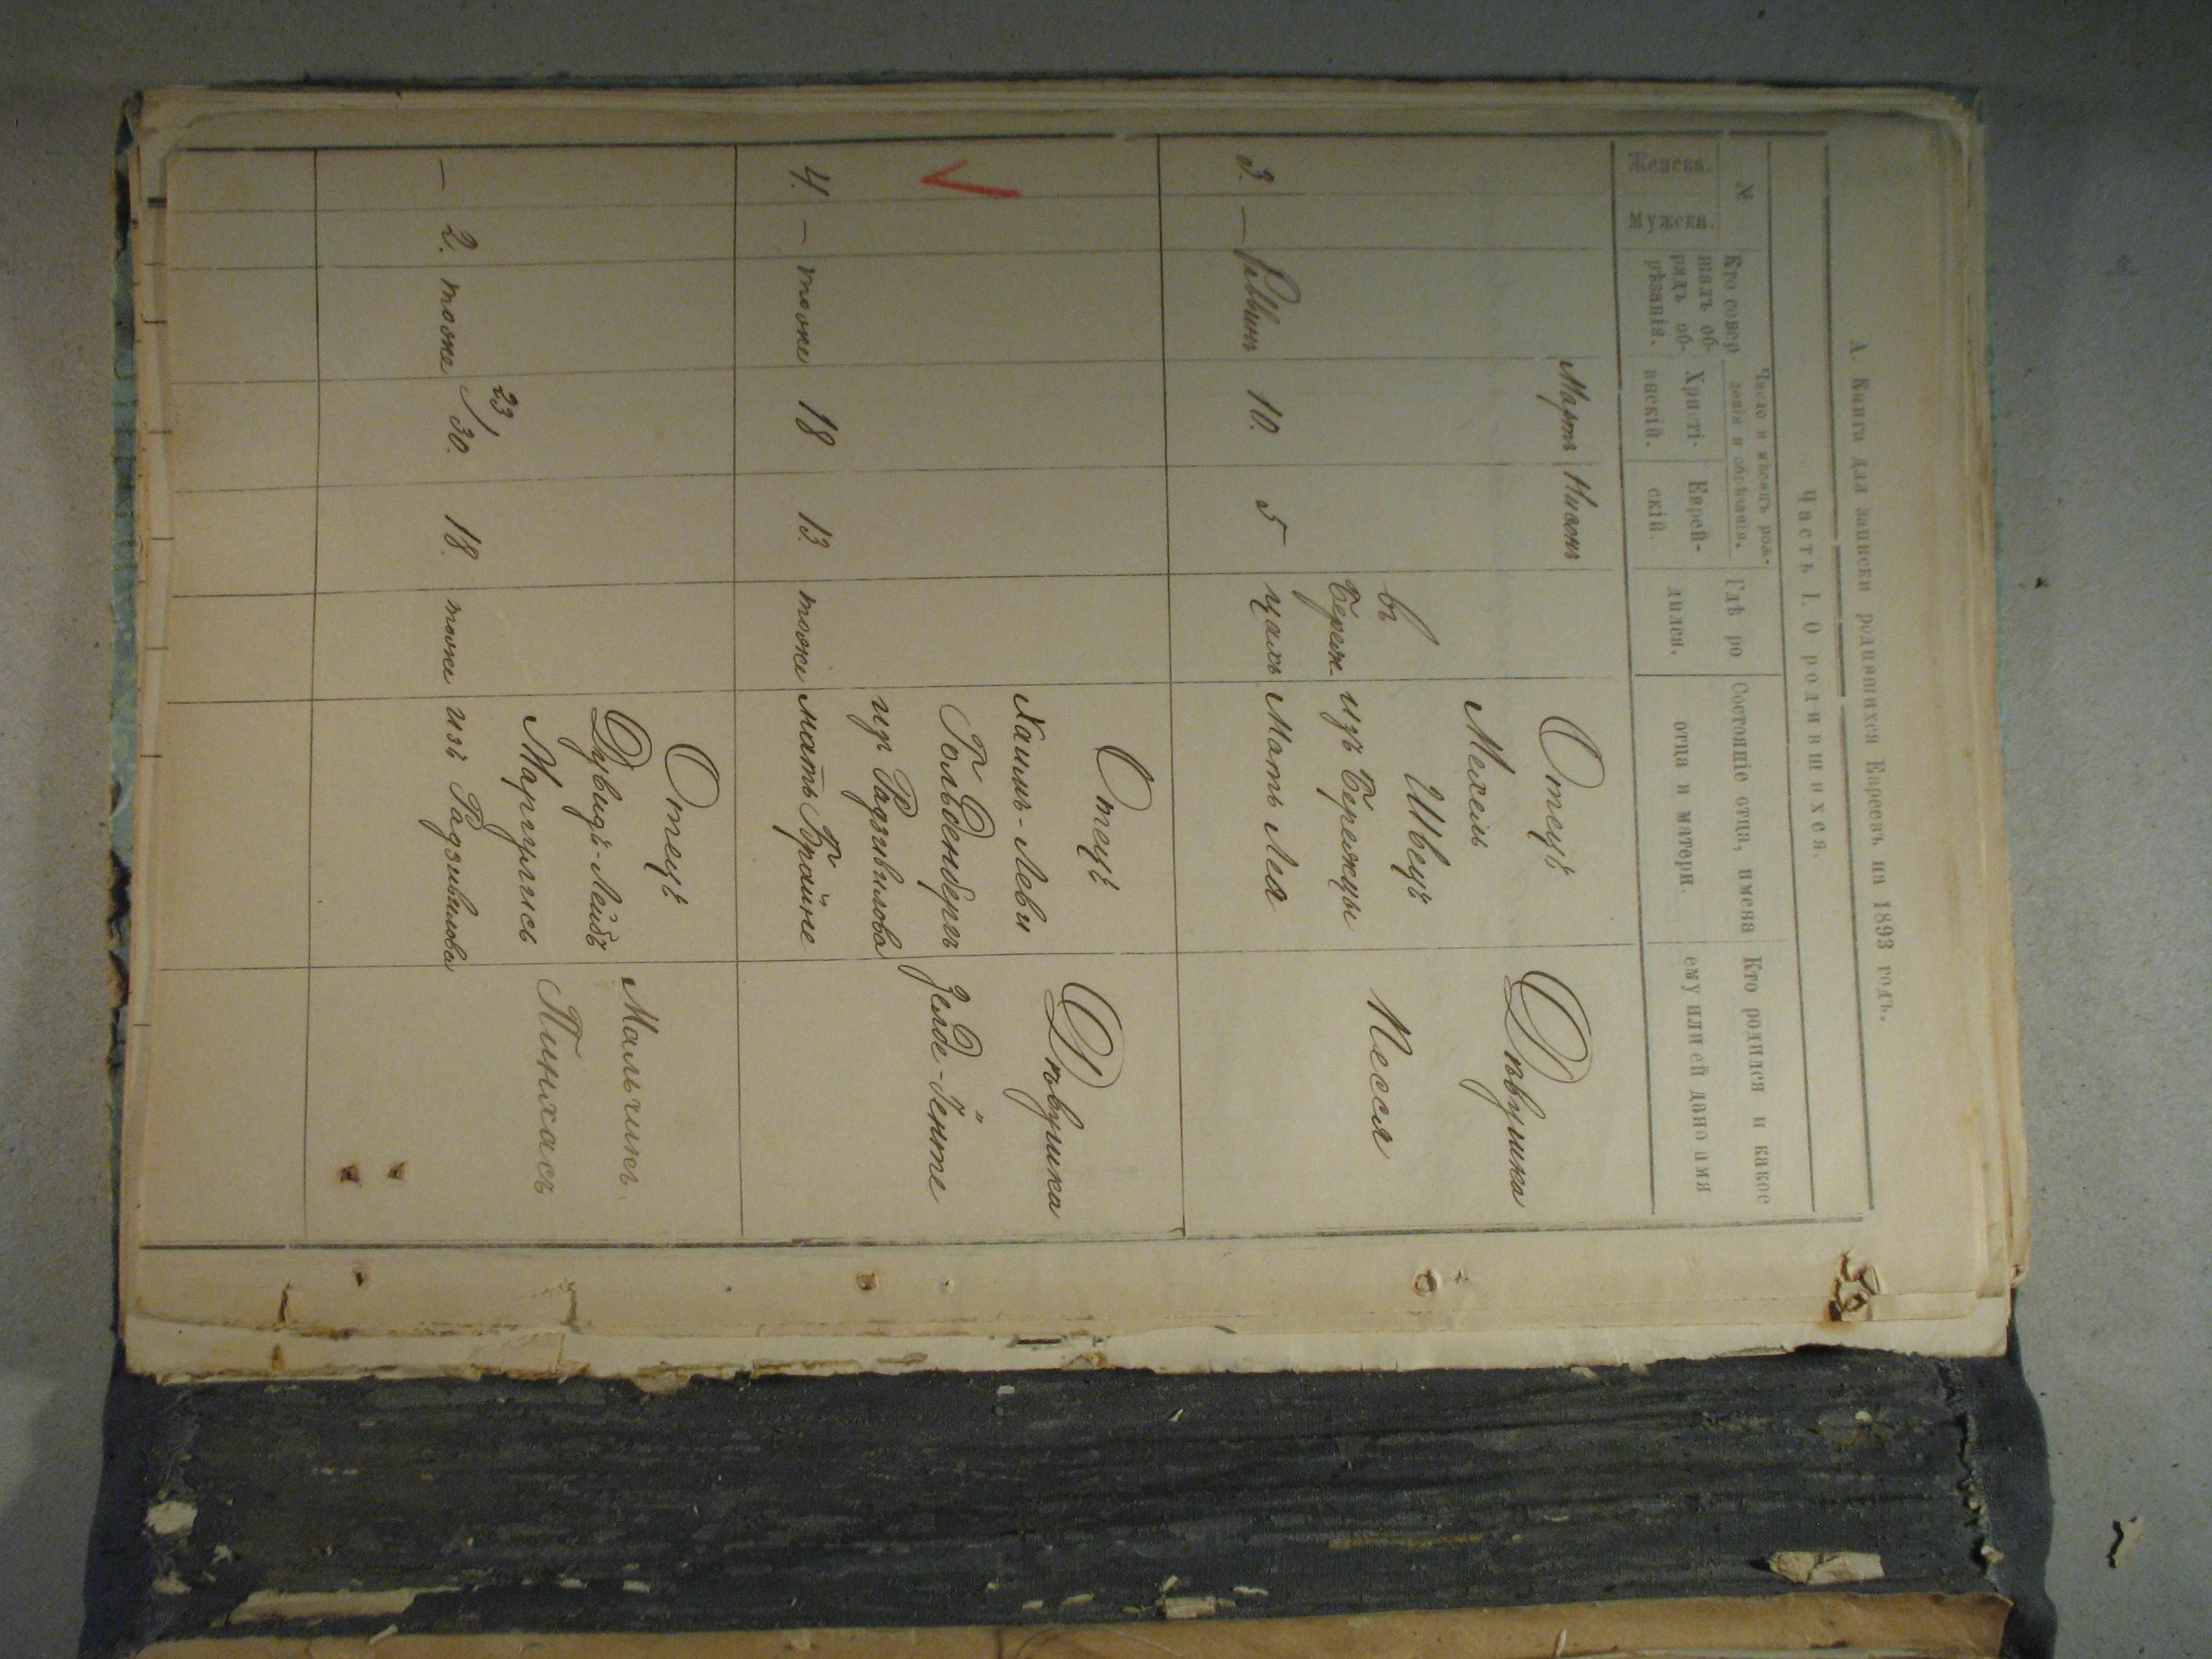 А. Книга для записки родившихся Евреевъ на 1893 годъ.
Часть I. О родившихся.
№
Женска.
Мужска.
Кто совер
шалъ об-
рядъ об-
рѣзанія.
Число и мѣсяцъ рож-
денія и обрѣзанія.
Христі-
анскій.
Еврей-
скій.
Гдѣ ро
дился.
Состояніе отца, имена
отца и матери.
Кто родился и какое
ему или ей дано имя
Мартъ Нисонъ
3. — Раввинъ 10. 5
въ
Береж-
цахъ
Отецъ
Мехель
Швецъ
изъ Бережцы
Мать Лея
Дѣвушка
Песся
4. — тоже 18 13. тоже
Отецъ
Хаимъ-Леви
Гольденбергъ
изъ Радзивилова
мать Брайне
Дѣвушка
Зельде-Енте
— 2. тоже 23/30. 18. тоже
Отецъ
Дувидъ-Лейбъ
Маргулисъ
изъ Радзивилова
Мальчикъ
Пинхасъ